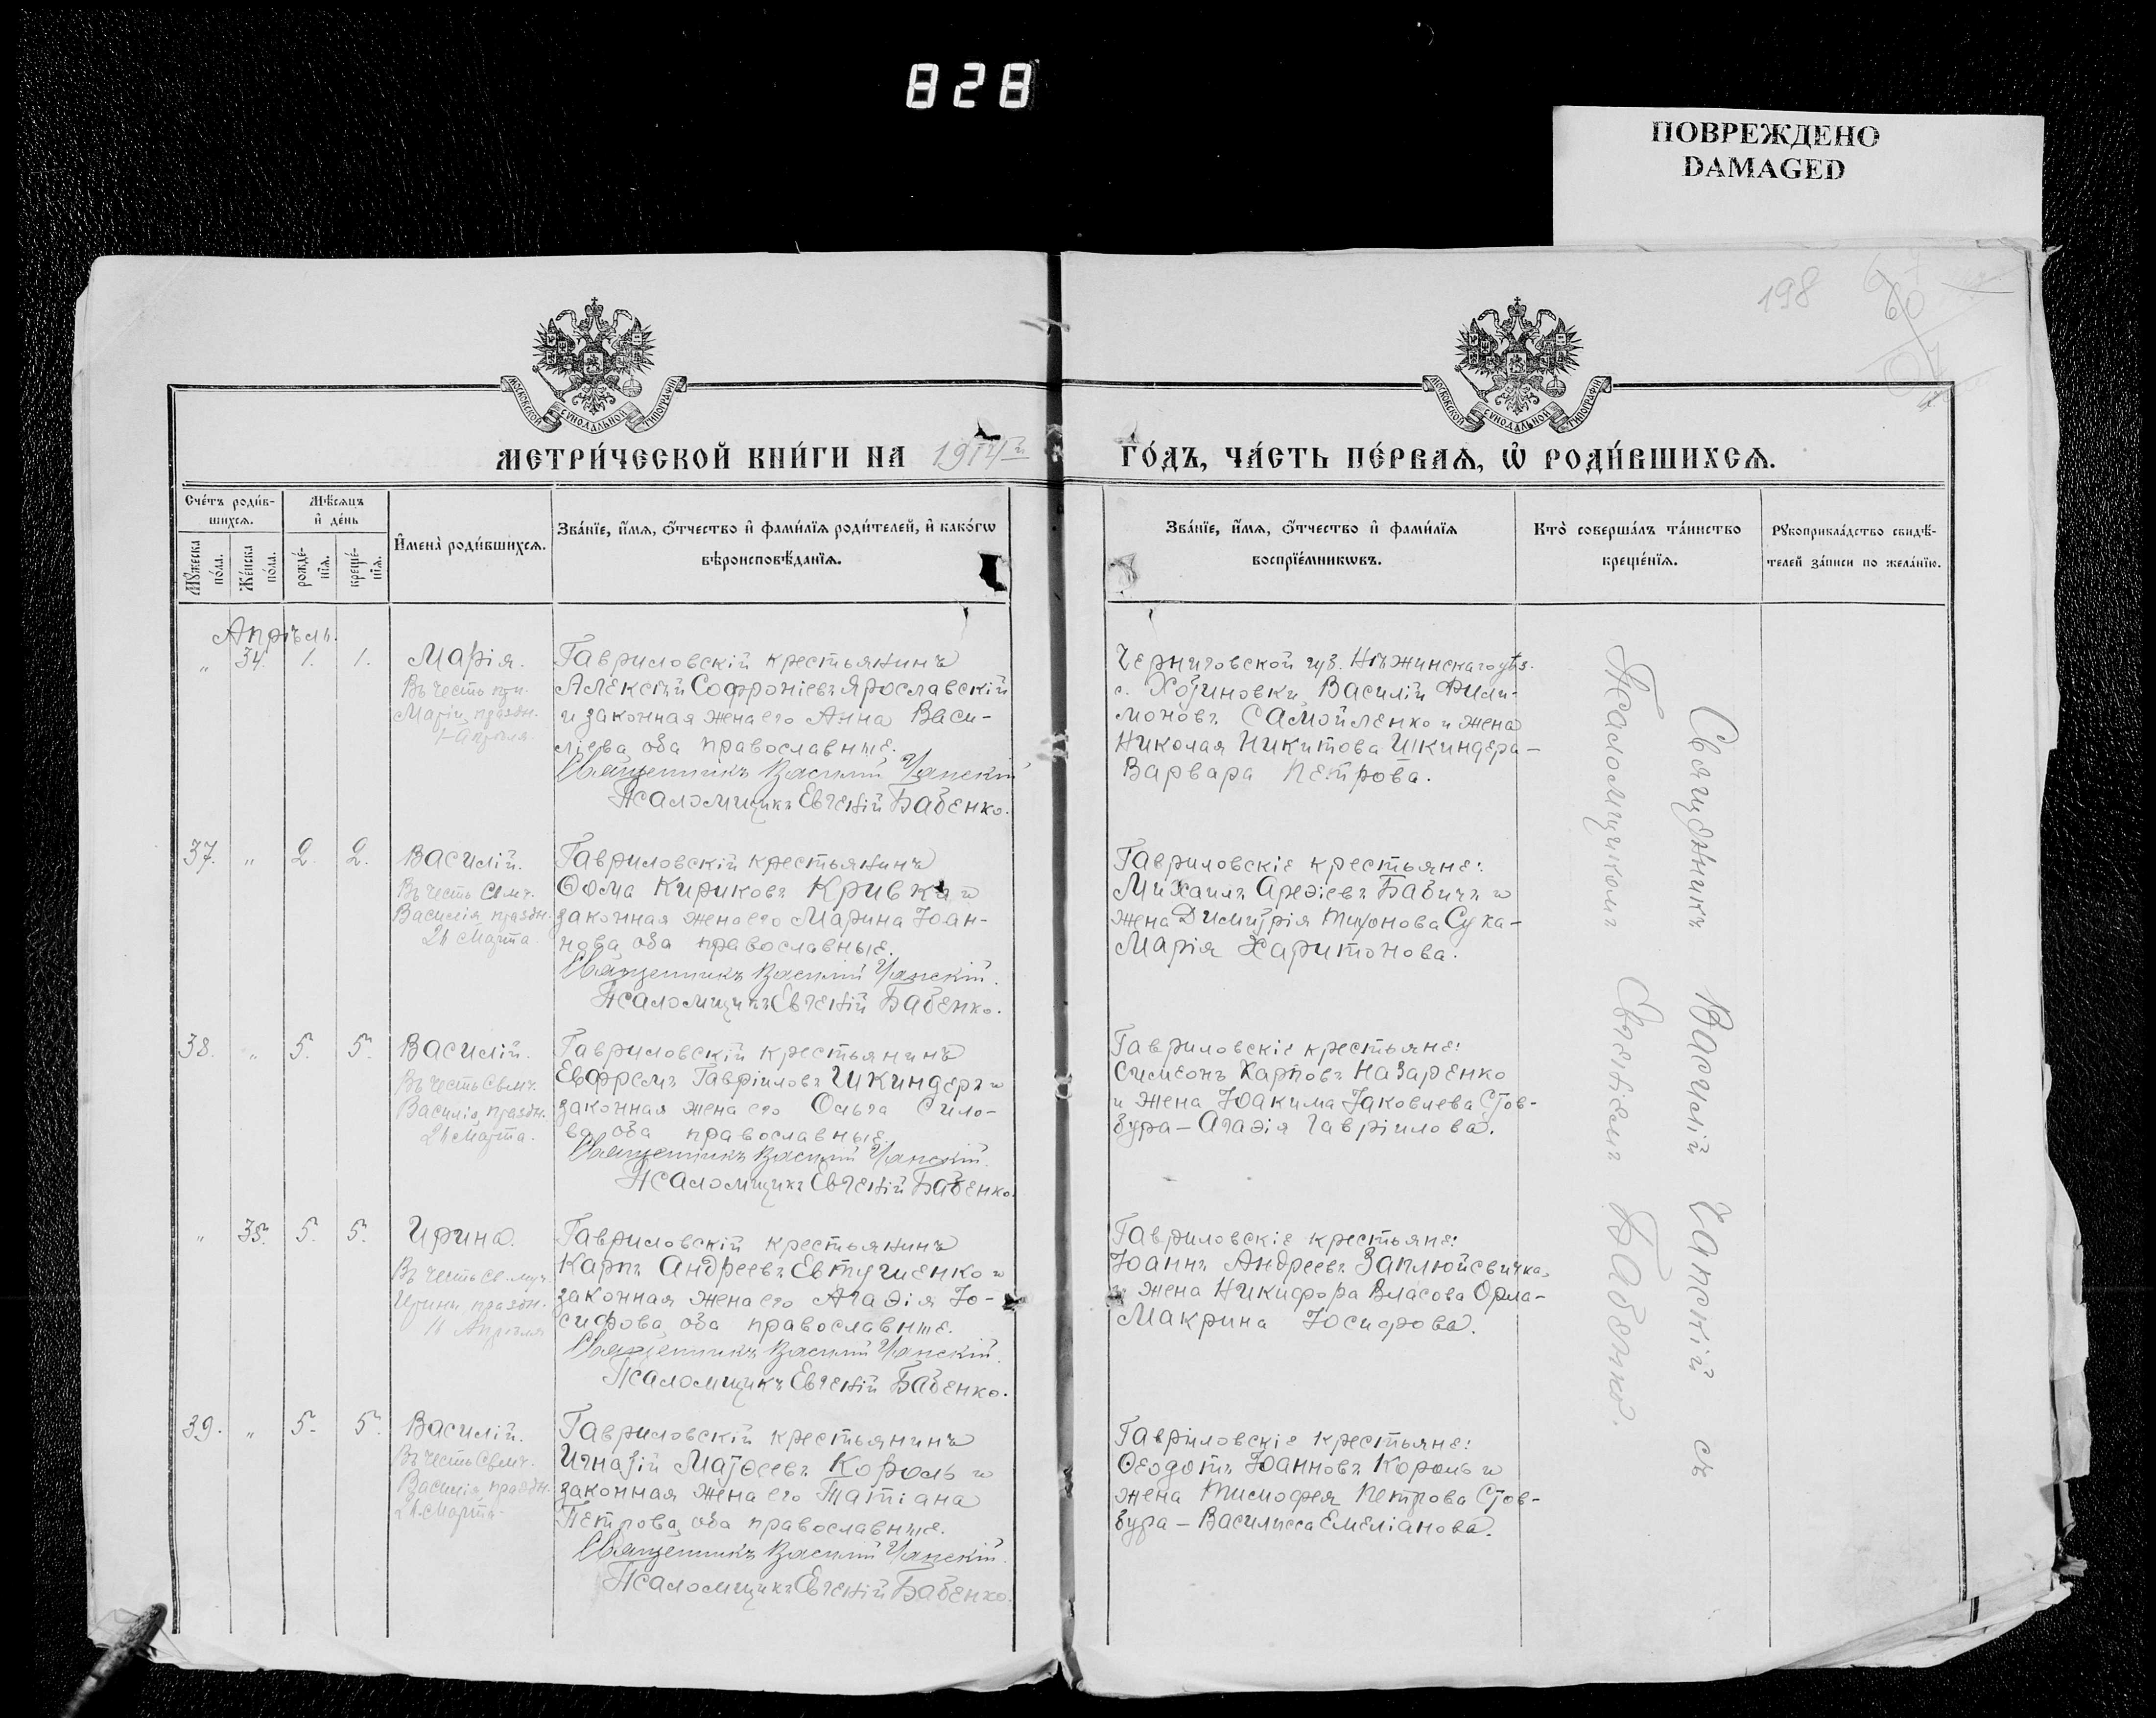 828
ПОВРЕЖДЕНО
DAMAGED
198
МОСКОВСКОЙ СУНОДАЛЬНОЙ ТИПОГРАФІИ
МОСКОВСКОЙ СУНОДАЛЬНОЙ ТИПОГРАФІИ
МЕТРИ́ЧЕСКОЙ КНИ́ГИ НА
ГО́ДЪ, ЧА́СТЬ ПЕ́РВАѦ, Ѡ҆ РОДИ́ВШИХСѦ.
Сче́тъ роди́в-
шихсѧ.
Мꙋ́жеска по́ла.
Же́нска по́ла.
Мѣ́сѧцъ
и҆ де́нь
рожде́-
нїѧ.
креще́-
нїѧ.
И҆мена̀ роди́вшихсѧ.
Зва́нїе, и҆́мѧ, ѻ҆́тчество и҆ фами́лїѧ роди́телей, и҆ како́гѡ
вѣроисповѣ́данїѧ.
Зва́нїе, и҆́мѧ, ѻ҆́тчество и҆ фами́лїѧ
воспрїе́мникѡвъ.
Кто̀ соверша́лъ та́инство
креще́нїѧ.
Рꙋкоприкла́дство свидѣ́-
телей за́писи по жела́нїю.
Апрѣль.
„ 34. 1. 1. Марія.
Въ честь пр.
Маріи, праздн.
1 Апрѣля.
Гавриловскій крестьянинъ
Алексѣй Софроніевъ Ярославскій
и законная жена его Анна Васи-
ліева, оба православные.
Священникъ Василій Чапскій
Псаломщикъ Евгеній Бабенко.
Черниговской губ. Нѣжинскаго уѣз.
с. Хотиновки, Василій Фили-
моновъ Самойленко и жена
Николая Никитова Шкиндера –
Варвара Петрова.
37. „ 2. 2. Василій.
Въ честь Свмч.
Василія, праздн.
Марта.
Гавриловскій крестьянинъ
Ѳома Кириковъ Кривка и
законная жена его Марина Іоан-
нова, оба православные.
Священникъ Василій Чапскій.
Псаломщикъ Евгеній Бабенко.
Гавриловскіе крестьяне:
Михаилъ Бабичъ и
жена Димитрія Тихонова Сука –
Марія Харитонова.
38. „ 5. 5. Василій.
Въ честь Свмч.
Василія, праздн.
Марта.
Гавриловскій крестьянинъ
Евфремъ Гавріиловъ Шкиндеръ и
законная жена его Ольга Сило-
ва, оба православные.
Священникъ Василій Чапскій.
Псаломщикъ Евгеній Бабенко.
Гавриловскіе крестьяне:
Симеонъ Карповъ Назаренко
и жена Іоакима Іаковлева Стов-
бура – Агаѳія Гавріилова.
„ 35. 5. 5. Ирина.
Въ честь св. муч.
Ирины, праздн.
16 Апрѣля
Гавриловскій крестьянинъ
Карпъ Андреевъ Евтушенко и
законная жена его Агаѳія Іо-
сифова, оба православные.
Священникъ Василій Чапскій.
Псаломщикъ Евгеній Бабенко.
Гавриловскіе крестьяне:
Іоаннъ Андреевъ Заплюйсвичка,
и жена Никифора Власова Орла –
Макрина Іосифова.
39. „ 5. 5. Василій.
Въ честь Свмч.
Василія, праздн.
Марта.
Гавриловскій крестьянинъ
Игнатій Матѳеевъ Король и
законная жена его Татіана
Петрова, оба православные.
Священникъ Василій Чапскій.
Псаломщикъ Евгеній Бабенко.
Гавріловскіе крестьяне:
Ѳеодотъ Іоанновъ Король и
жена Тимофея Петрова Стов-
бура – Василисса Емеліанова.
Священникъ Василій Чапскій съ
Псаломщикомъ Евгеніемъ Бабенко.